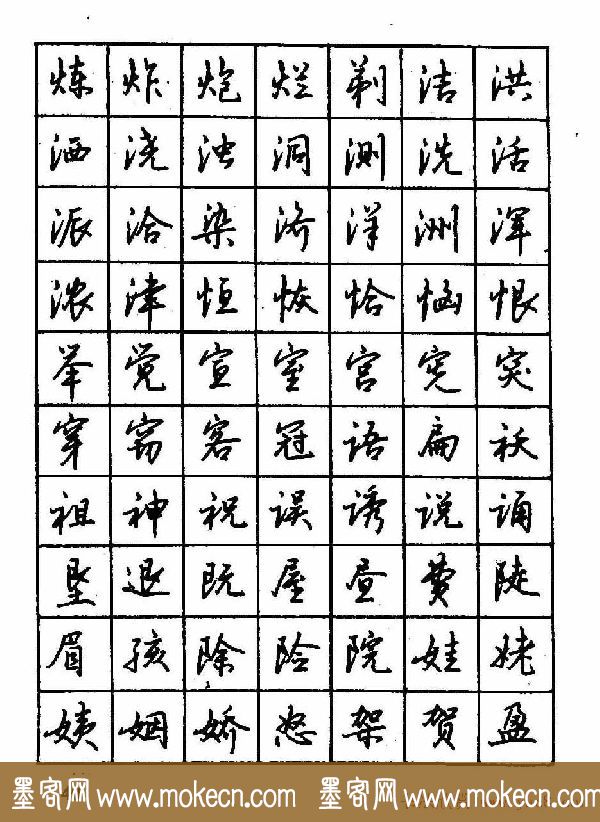 炼 炸 炮 烂 剃 洁 洪
洒 浇 浊 洞 测 洗 活
派 洽 染 济 洋 洲 浑
浓 津 恒 恢 恰 恼 恨
举 觉 宣 室 宫 宪 突
穿 窃 客 冠 语 扁 袄
祖 神 祝 误 诱 说 诵
垦 退 既 屋 昼 费 陡
眉 孩 除 险 院 娃 姥
姨 姻 娇 怒 架 贺 盈
墨客网 www.mokecn.com 墨客网 www.mokecn.com